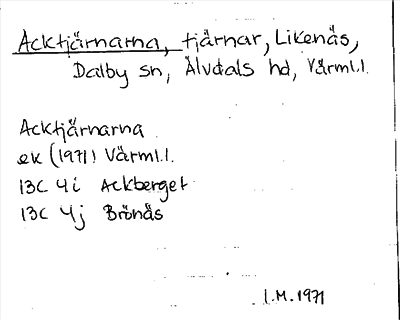 Acktjärnarna, tjärnar, Likenäs,
Dalby sn, Älvdals hd, Värml.l.
Acktjärnarna
ek (1971) Värml.l.
13C 4i Ackberget
13C 4j Brönäs
I.M. 1971